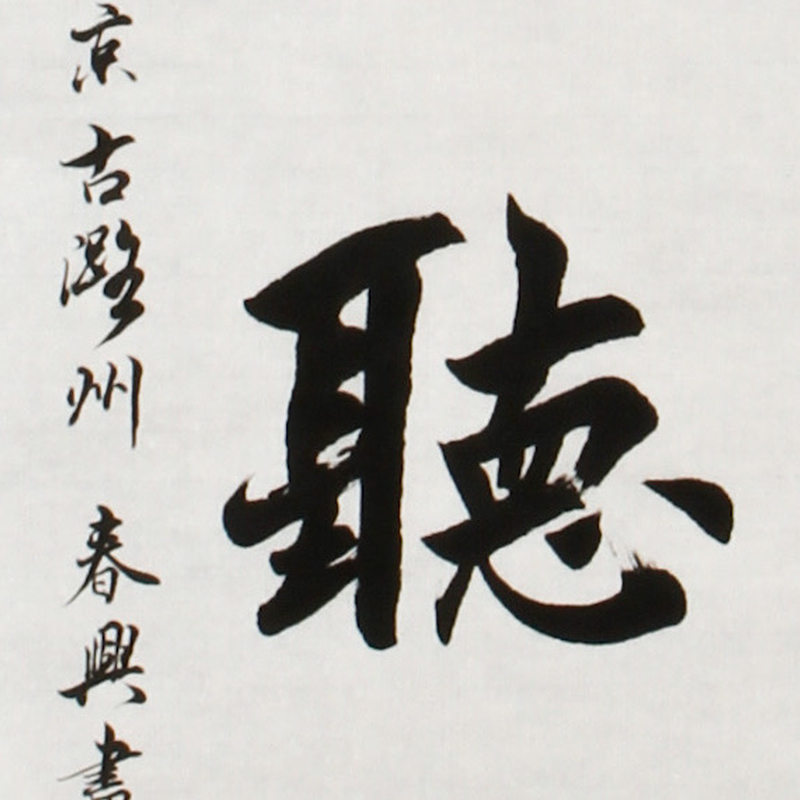 聽
京古潞州 春興書